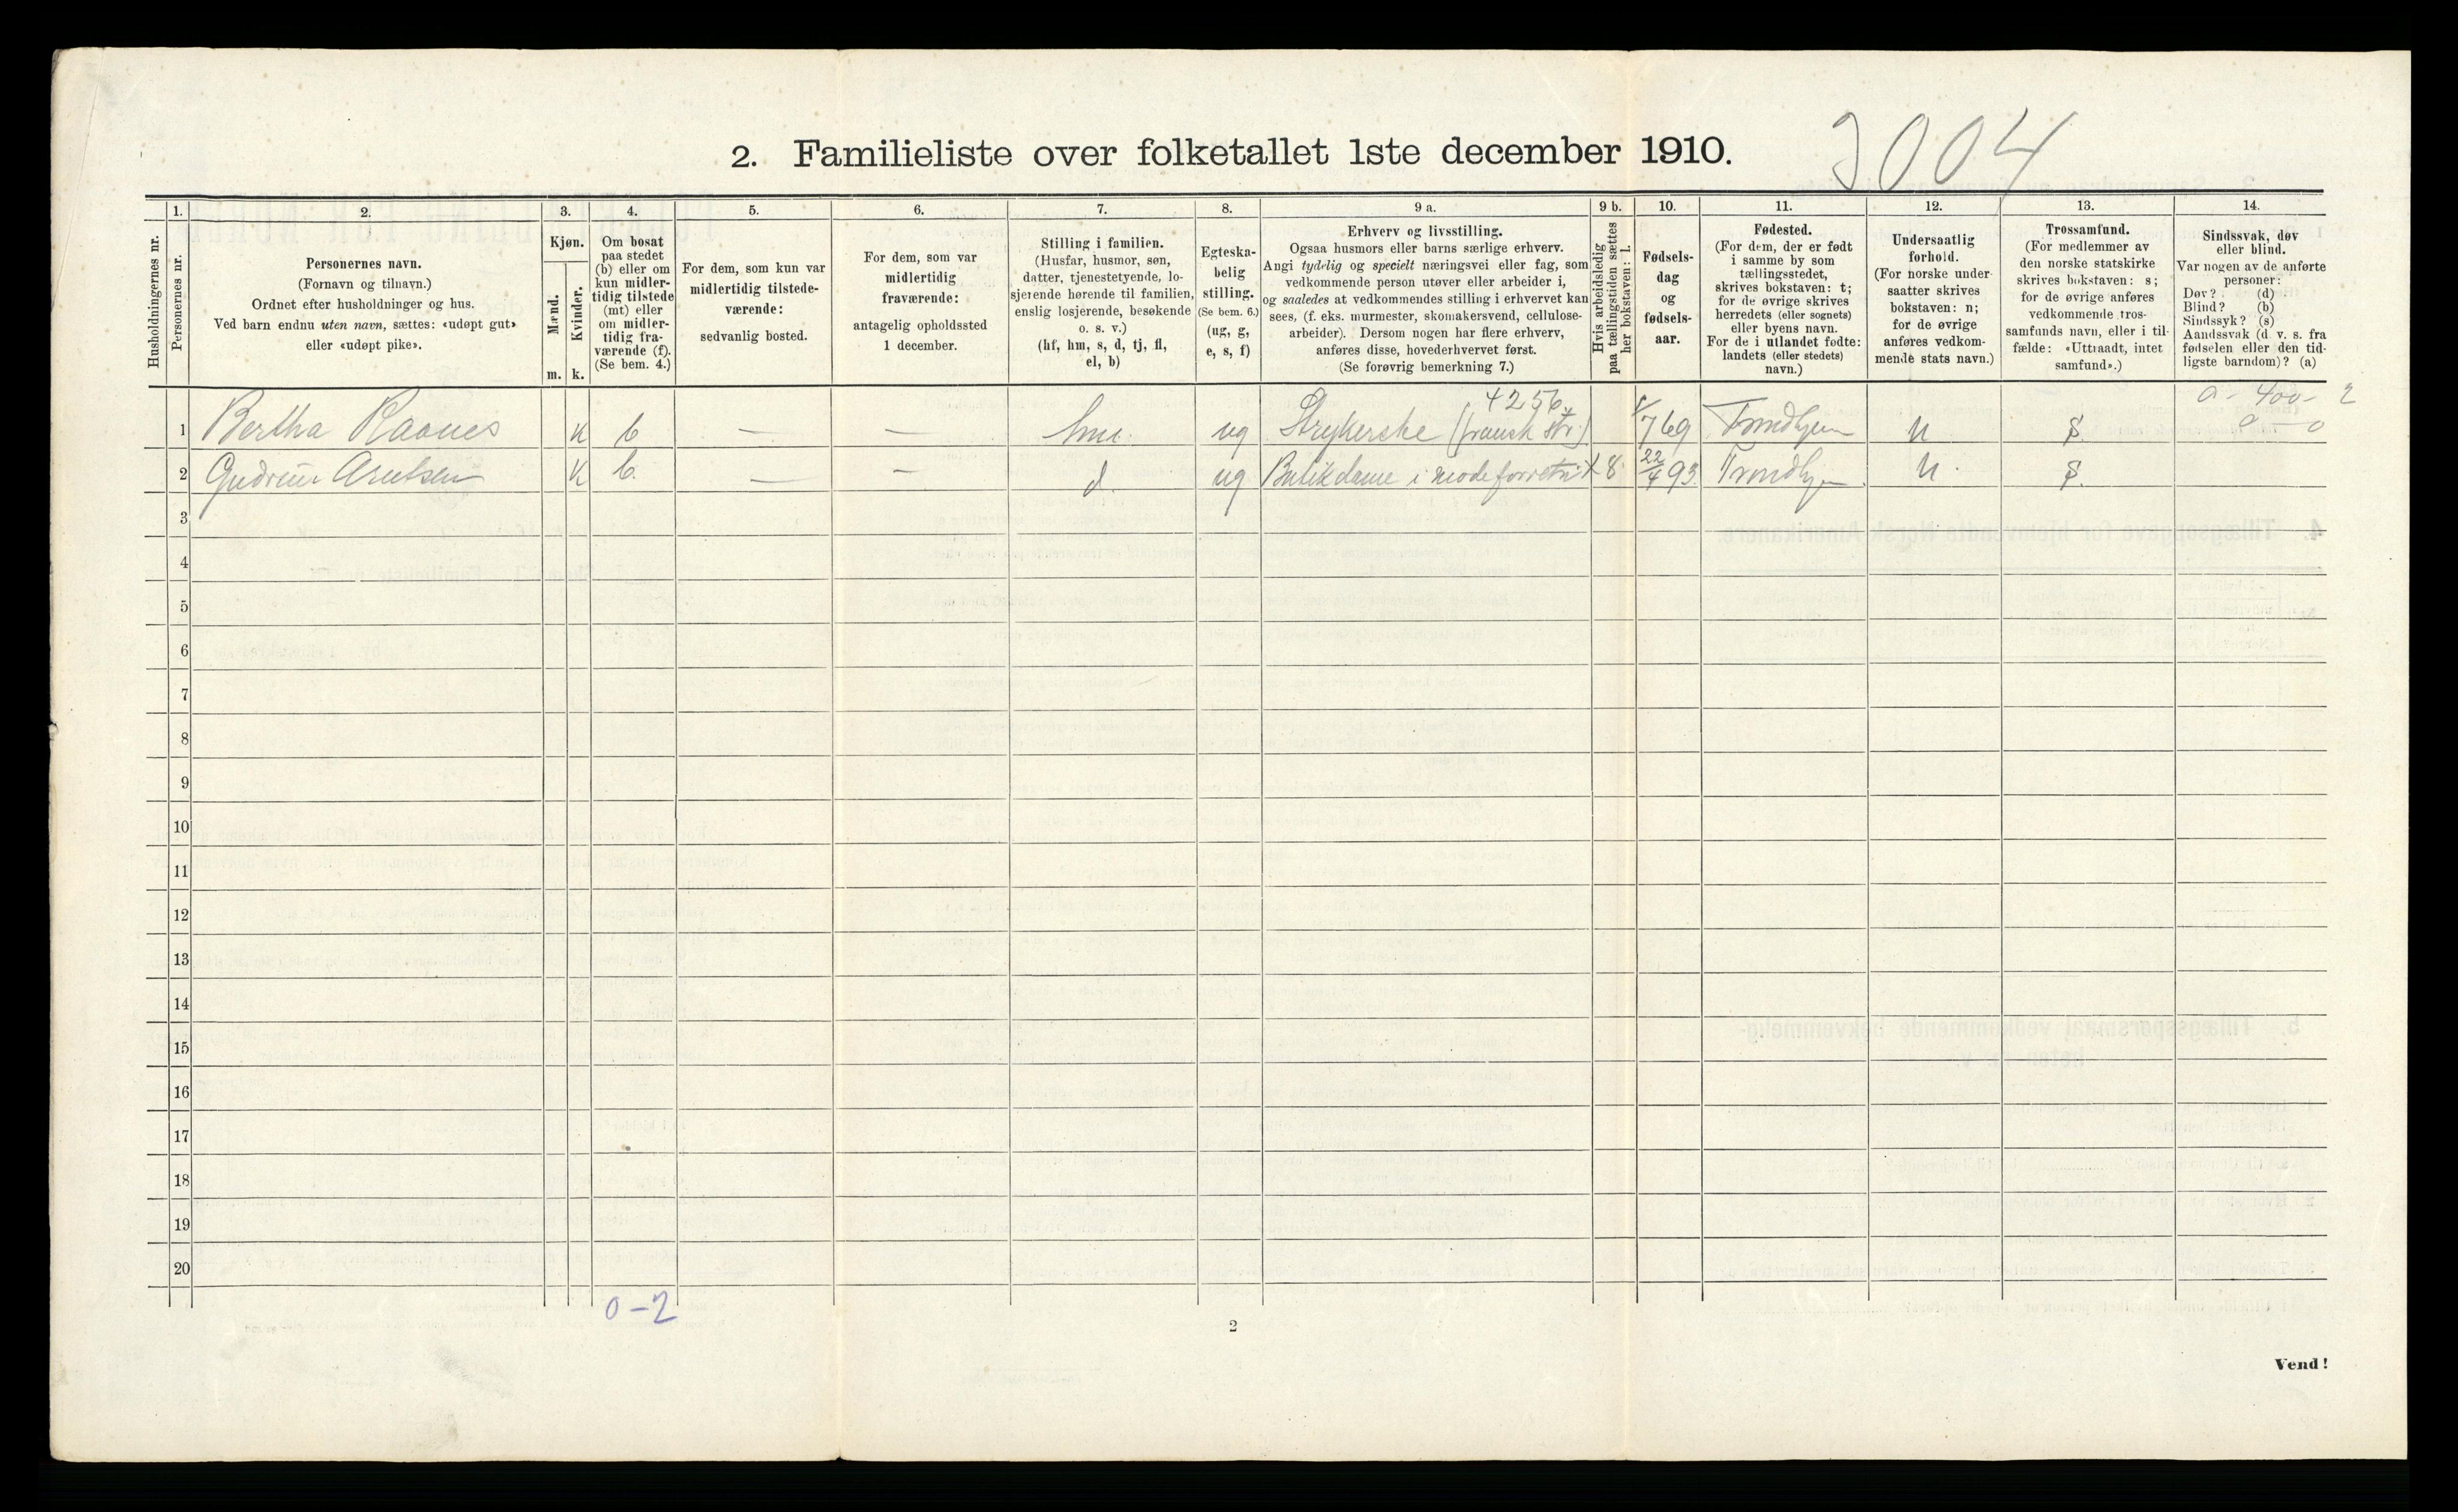 2. Familieliste over folketallet 1ste december 1910.
3004
Husholdningernes nr.
1. Personernes nr.
2. Personernes navn.
(Fornavn og tilnavn.)
Ordnet efter husholdninger og hus.
Ved barn endnu uten navn, sættes: «udøpt gut»
eller «udøpt pike».
3. Kjøn.
Mænd. m.
Kvinder. k.
4. Om bosat
paa stedet
(b) eller om
kun midler-
tidig tilstede
(mt) eller
om midler-
tidig fra-
værende (f).
(Se bem. 4.)
5. For dem, som kun var
midlertidig tilstede-
værende:
sedvanlig bosted.
6. For dem, som var
midlertidig
fraværende:
antagelig opholdssted
1 december.
7. Stilling i familien.
(Husfar, husmor, søn,
datter, tjenestetyende, lo-
sjerende hørende til familien,
enslig losjerende, besøkende
o. s. v.)
(hf, hm, s, d, tj, fl,
el, b)
8. Egteska-
belig
stilling.
(Se bem. 6.)
(ug, g,
e, s, f)
9 a. Erhverv og livsstilling.
Ogsaa husmors eller barns særlige erhverv.
Angi tydelig og specielt næringsvei eller fag, som
vedkommende person utøver eller arbeider i,
og saaledes at vedkommendes stilling i erhvervet kan
sees, (f. eks. murmester, skomakersvend, cellulose-
arbeider). Dersom nogen har flere erhverv,
anføres disse, hovederhvervet først.
(Se forøvrig bemerkning 7.)
9 b. Hvis arbeidsledig
paa tællingstiden sættes
her bokstaven: l.
10. Fødsels-
dag
og
fødsels-
aar.
11. Fødested.
(For dem, der er født
i samme by som
tællingsstedet,
skrives bokstaven: t;
for de øvrige skrives
herredets (eller sognets)
eller byens navn.
For de i utlandet fødte:
landets (eller stedets)
navn.)
12. Undersaatlig
forhold.
(For norske under-
saatter skrives
bokstaven: n;
for de øvrige
anføres vedkom-
mende stats navn.)
13. Trossamfund.
(For medlemmer av
den norske statskirke
skrives bokstaven: s;
for de øvrige anføres
vedkommende tros-
samfunds navn, eller i til-
fælde: «Uttraadt, intet
samfund».)
14. Sindssvak, døv
eller blind.
Var nogen av de anførte
personer:
Døv? (d)
Blind? (b)
Sindssyk? (s)
Aandssvak (d. v. s. fra
fødselen eller den tid-
ligste barndom)? (a)
4256 0 - 400 - 2
1 Bertha Raanes K b — — hm. ug Strykerske (fransk str.) 7 69 Trondhjem n S 0 — 0
2 Gudrun Arntsen K b. — — d. ug Butikdame i modeforretn. X 8 22/4 93. Trondhjem n. S.
3
4
5
6
7
8
9
10
11
12
13
14
15
16
17
18
19
20
0 - 2
2
Vend!